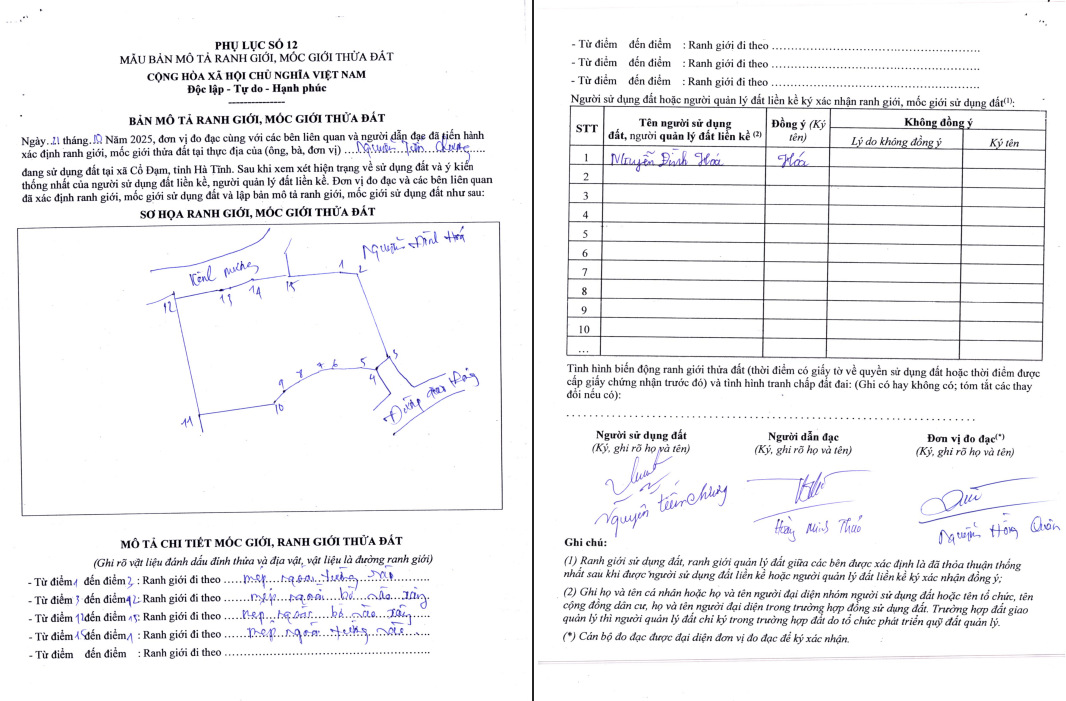 PHỤ LỤC SỐ 12
MẪU BẢN MÔ TẢ RANH GIỚI, MỐC GIỚI THỬA ĐẤT
CỘNG HÒA XÃ HỘI CHỦ NGHĨA VIỆT NAM
Độc lập - Tự do - Hạnh phúc
BẢN MÔ TẢ RANH GIỚI, MỐC GIỚI THỬA ĐẤT
Ngày 21 tháng 12 Năm 2025, đơn vị đo đạc cùng với các bên liên quan và người dẫn đạc đã tiến hành
xác định ranh giới, mốc giới thửa đất tại thực địa của (ông, bà, đơn vị) Nguyễn Tiến Chung
đang sử dụng đất tại xã Cổ Đạm, tỉnh Hà Tĩnh. Sau khi xem xét hiện trạng về sử dụng đất và ý kiến
thống nhất của người sử dụng đất liền kề, người quản lý đất liền kề. Đơn vị đo đạc và các bên liên quan
đã xác định ranh giới, mốc giới sử dụng đất và lập bản mô tả ranh giới, mốc giới sử dụng đất như sau:
SƠ HỌA RANH GIỚI, MỐC GIỚI THỬA ĐẤT
Nguyễn Đình Hoá
Kênh mương
1 2
12 13 14 15
3
4 5 6 7 8 9
10
11
Đường giao thông
MÔ TẢ CHI TIẾT MỐC GIỚI, RANH GIỚI THỬA ĐẤT
(Ghi rõ vật liệu đánh dấu đỉnh thửa và địa vật, vật liệu là đường ranh giới)
- Từ điểm 1 đến điểm 3 : Ranh giới đi theo mép ngoài tường rào
- Từ điểm 3 đến điểm 12 : Ranh giới đi theo mép ngoài bờ rào xây
- Từ điểm 12 đến điểm 15 : Ranh giới đi theo mép ngoài bờ rào xây
- Từ điểm 15 đến điểm 1 : Ranh giới đi theo mép ngoài tường rào
- Từ điểm đến điểm : Ranh giới đi theo
- Từ điểm đến điểm : Ranh giới đi theo
- Từ điểm đến điểm : Ranh giới đi theo
- Từ điểm đến điểm : Ranh giới đi theo
Người sử dụng đất hoặc người quản lý đất liền kề ký xác nhận ranh giới, mốc giới sử dụng đất(1):
STT
Tên người sử dụng
đất, người quản lý đất liền kề (2)
Đồng ý (Ký
tên)
Không đồng ý
Lý do không đồng ý
Ký tên
1 Nguyễn Đình Hoá Hoá
2
3
4
5
6
7
8
9
10
…
Tình hình biến động ranh giới thửa đất (thời điểm có giấy tờ về quyền sử dụng đất hoặc thời điểm được
cấp giấy chứng nhận trước đó) và tình hình tranh chấp đất đai: (Ghi có hay không có; tóm tắt các thay
đổi nếu có):
Người sử dụng đất
(Ký, ghi rõ họ và tên)
Nguyễn Tiến Chung
Người dẫn đạc
(Ký, ghi rõ họ và tên)
Hoàng Minh Thảo
Đơn vị đo đạc(*)
(Ký, ghi rõ họ và tên)
Nguyễn Hồng Quân
Ghi chú:
(1) Ranh giới sử dụng đất, ranh giới quản lý đất giữa các bên được xác định là đã thỏa thuận thống
nhất sau khi được người sử dụng đất liền kề hoặc người quản lý đất liền kề ký xác nhận đồng ý;
(2) Ghi họ và tên cá nhân hoặc họ và tên người đại diện nhóm người sử dụng đất hoặc tên tổ chức, tên
cộng đồng dân cư, họ và tên người đại diện trong trường hợp đồng sử dụng đất. Trường hợp đất giao
quản lý thì người quản lý đất chỉ ký trong trường hợp đất do tổ chức phát triển quỹ đất quản lý.
(*) Cán bộ đo đạc được đại diện đơn vị đo đạc để ký xác nhận.